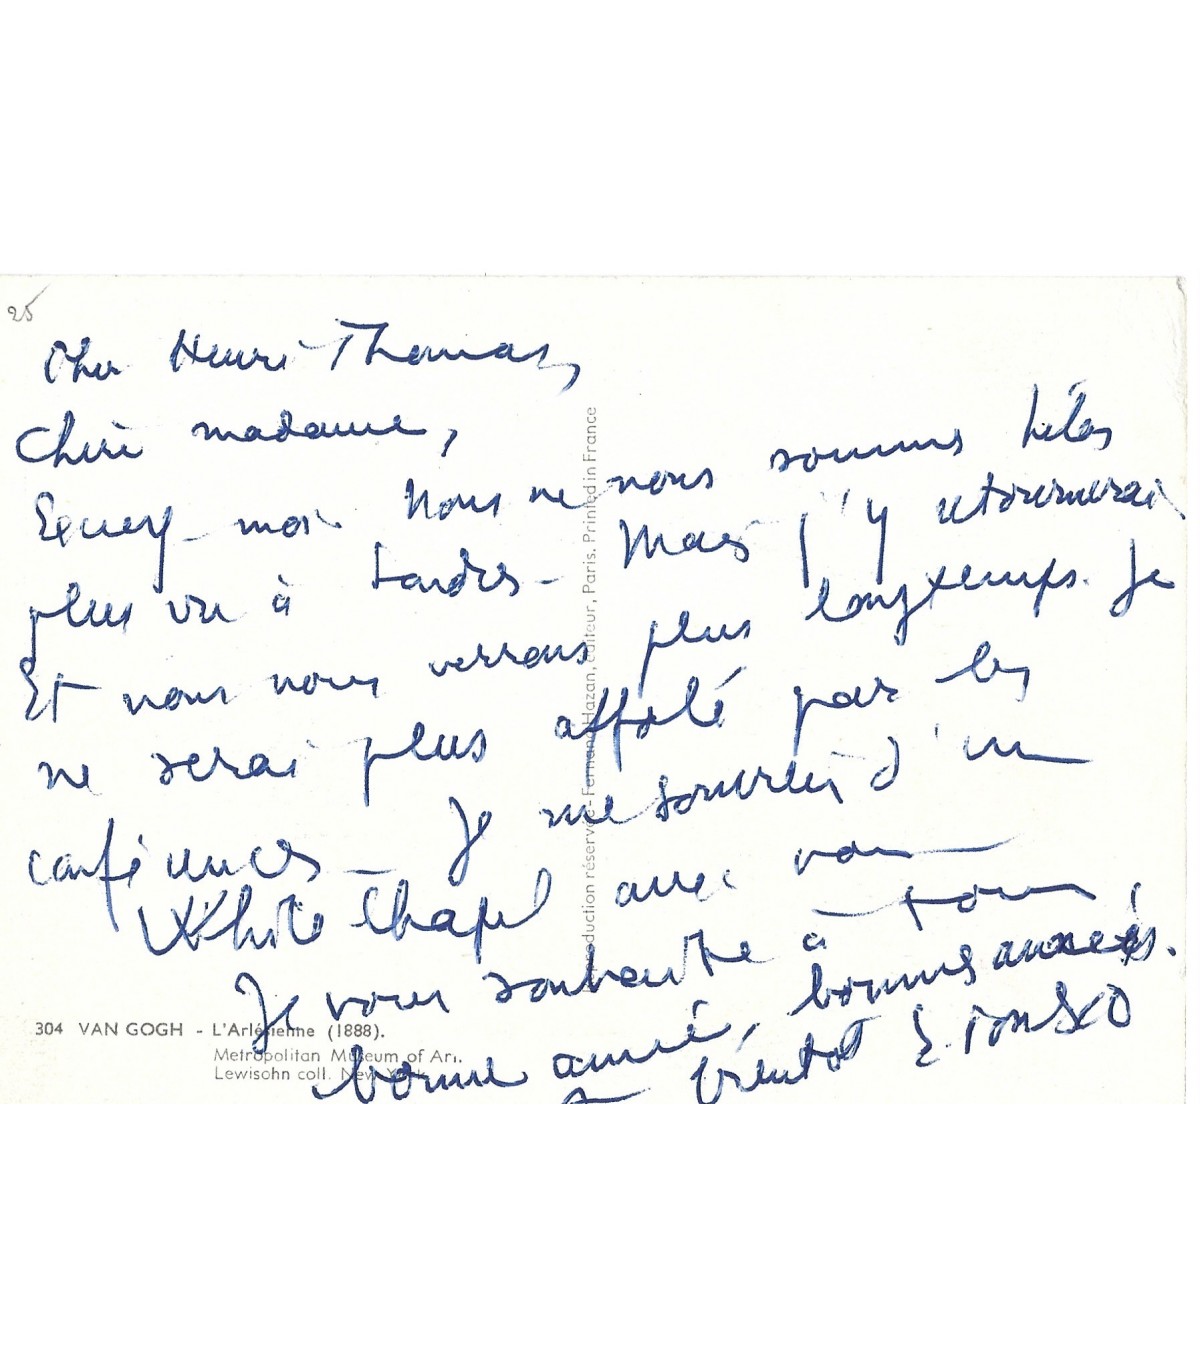 25
Cher Henri Thomas,
Chère madame,
Excusez-moi. Nous ne nous sommes hélas
plus vu à Londres - Mais j'y retournerai
Et nous nous verrons plus longtemps. Je
ne serai plus affolé par les
conférences - Je me souviens d'un
White Chapel avec vous
Je vous souhaite à tous
bonne année, bonnes années.
A bientôt E. Ionesco
304 VAN GOGH - L'Arlésienne (1888).
Metropolitan Museum of Art.
Lewisohn coll. New York.
Reproduction réservée - Fernand Hazan, éditeur, Paris. Printed in France